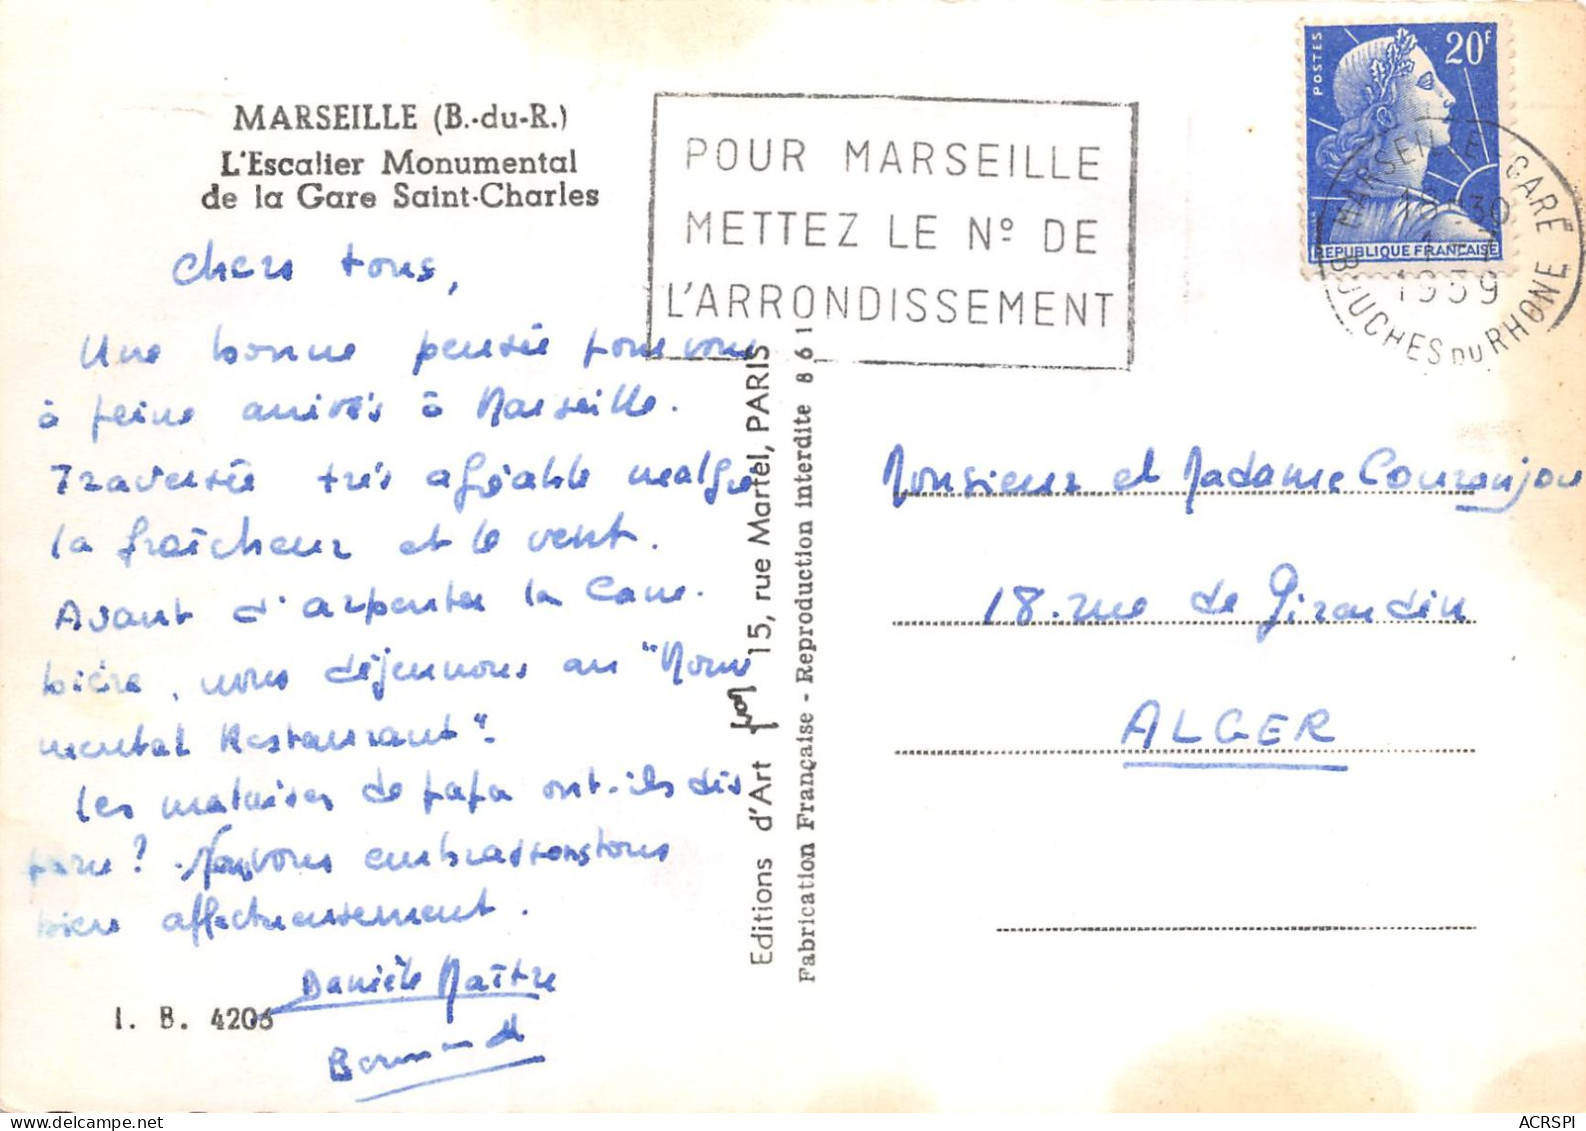 MARSEILLE (B.-du-R.)
L'Escalier Monumental
de la Gare Saint-Charles
Chers tous,
Une bonne pensée pour vous
à peine arrivés à Marseille.
Traversée très agréable malgré
la fraîcheur et le vent.
Avant d'arpenter la Cane.
bière, nous déjeunons au "Monu
mental Restaurant".
Les malaises de papa ont-ils dis
paru? Nous vous embrassons tous
bien affectueusement.
Danièle Maître
I. B. 4206
POUR MARSEILLE
METTEZ LE Nº DE
L'ARRONDISSEMENT
Editions d'Art 15, rue Martel, PARIS
Fabrication Française - Reproduction interdite 8 6 1
POSTES
20F
REPUBLIQUE FRANÇAISE
MARSEILLE-GARE
18-30
1959
BOUCHES DU RHONE
Monsieur et Madame Couranjou
18. rue de Girardin
ALGER
ACRSPI